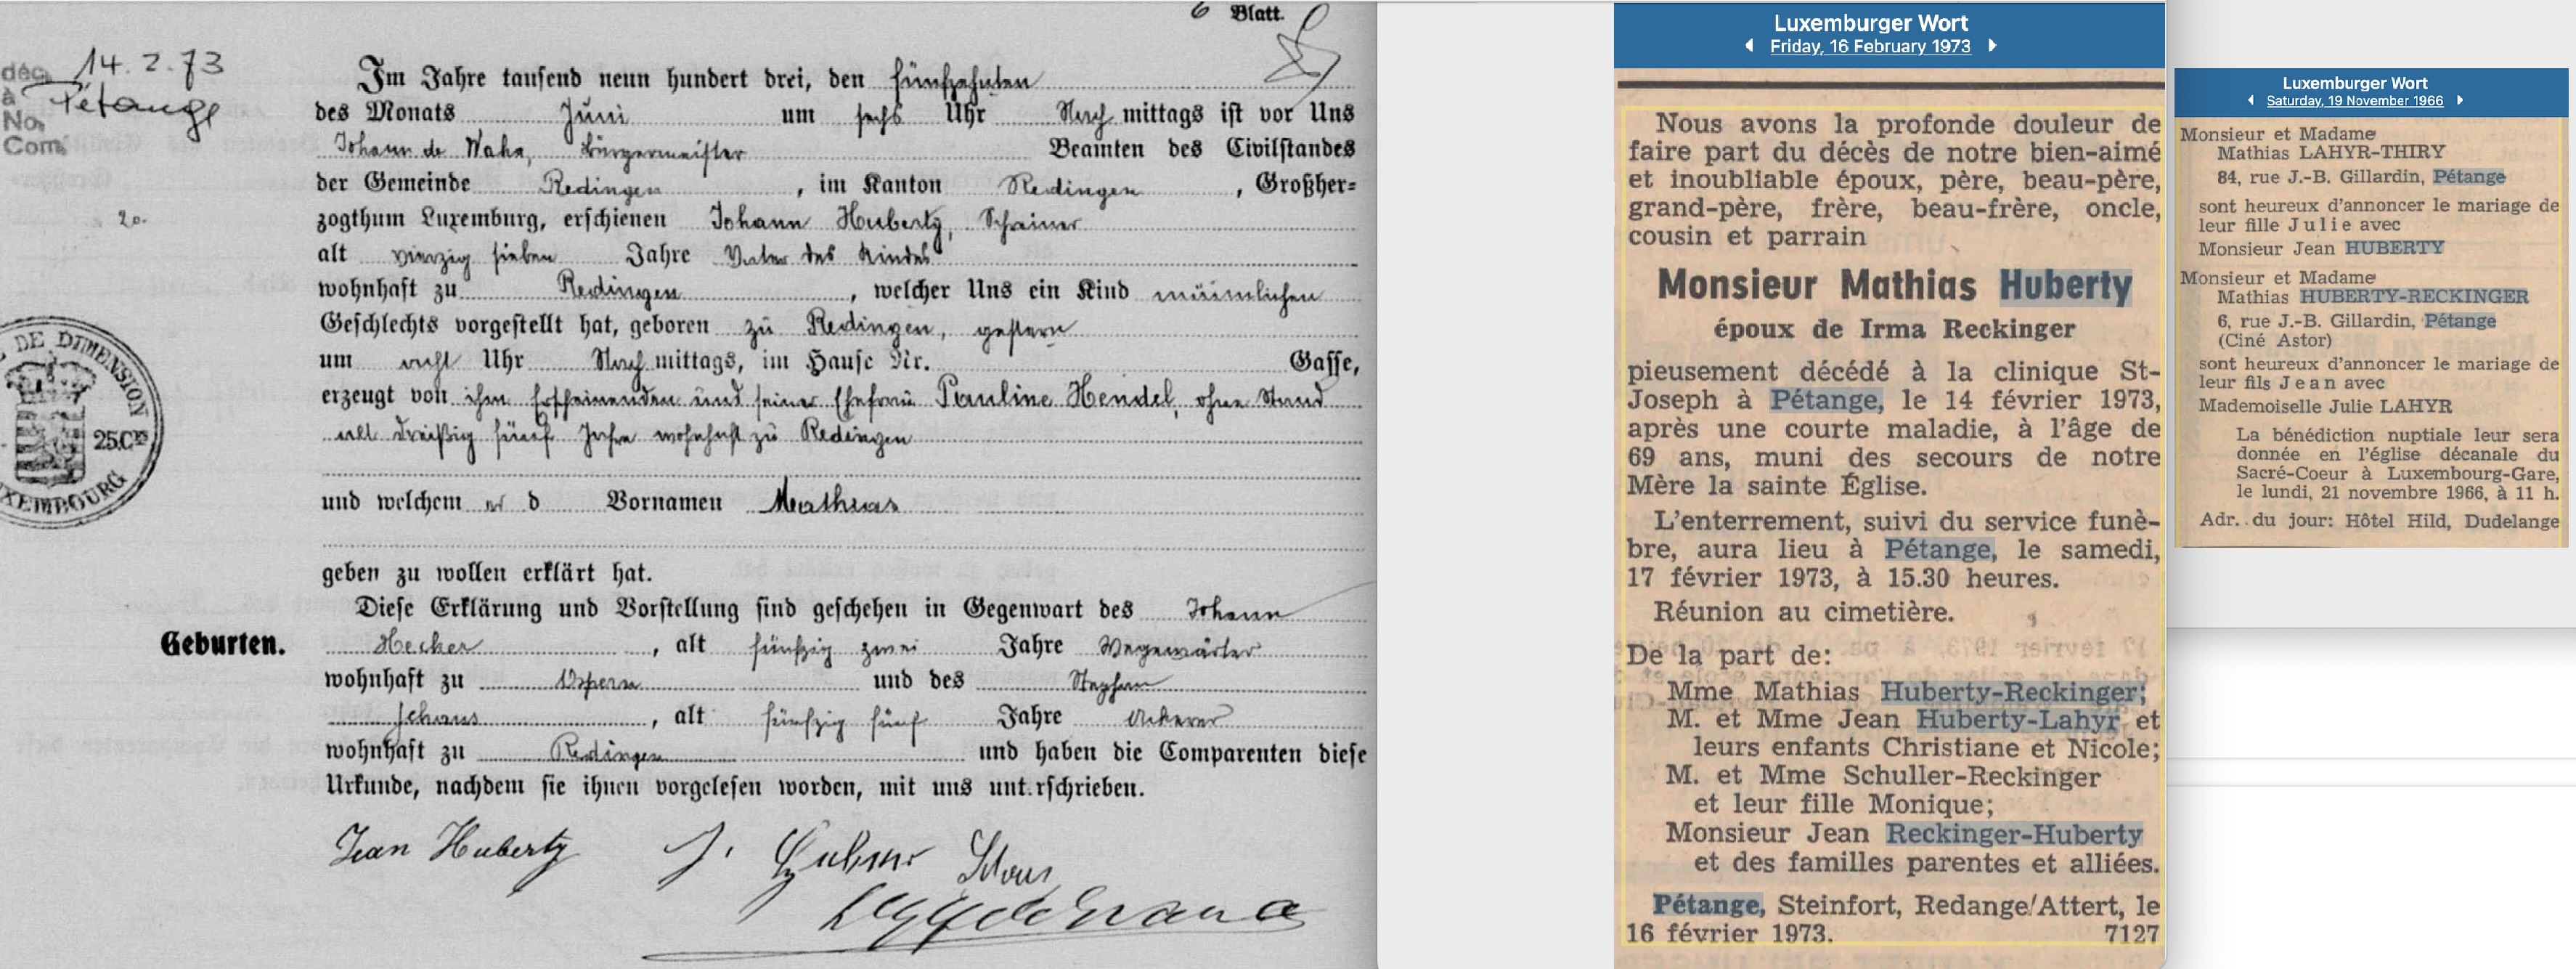 6 Blatt.
déc. 14.2.73
à Pétange
No.
Com.
20.
Im Jahre tausend neun hundert drei, den fünfzehnten
des Monats Juni um sechs Uhr Nachmittags ist vor Uns
Johann de Waha, Bürgermeister Beamten des Civilstandes
der Gemeinde Redingen, im Kanton Redingen, Großher=
zogthum Luxemburg, erschienen Johann Huberty, Schreiner
alt vierzig sieben Jahre Vater des Kindes
wohnhaft zu Redingen, welcher Uns ein Kind männlichen
Geschlechts vorgestellt hat, geboren zu Redingen, gestern
um acht Uhr Nachmittags, im Hause Nr. Gasse,
erzeugt von ihm Erscheinenden und seiner Ehefrau Pauline Hendel, ohne Stand
alt dreißig fünf Jahre wohnhaft zu Redingen
und welchem er d Vornamen Mathias
geben zu wollen erklärt hat.
Diese Erklärung und Vorstellung sind geschehen in Gegenwart des Johann
Hecker, alt fünfzig zwei Jahre Wegewärter
wohnhaft zu Ospern und des Stephan
Schaus, alt fünfzig fünf Jahre Ackerer
wohnhaft zu Redingen und haben die Comparenten diese
Urkunde, nachdem sie ihnen vorgelesen worden, mit uns unt.rschrieben.
Geburten.
DE DIMENSION
25.Ces
LUXEMBOURG
Jean Huberty
Luxemburger Wort
Friday, 16 February 1973
Nous avons la profonde douleur de
faire part du décès de notre bien-aimé
et inoubliable époux, père, beau-père,
grand-père, frère, beau-frère, oncle,
cousin et parrain
Monsieur Mathias Huberty
époux de Irma Reckinger
pieusement décédé à la clinique St-
Joseph à Pétange, le 14 février 1973,
après une courte maladie, à l'âge de
69 ans, muni des secours de notre
Mère la sainte Église.
L'enterrement, suivi du service funè-
bre, aura lieu à Pétange, le samedi,
17 février 1973, à 15.30 heures.
Réunion au cimetière.
De la part de:
Mme Mathias Huberty-Reckinger;
M. et Mme Jean Huberty-Lahyr et
leurs enfants Christiane et Nicole;
M. et Mme Schuller-Reckinger
et leur fille Monique;
Monsieur Jean Reckinger-Huberty
et des familles parentes et alliées.
Pétange, Steinfort, Redange/Attert, le
16 février 1973. 7127
Luxemburger Wort
Saturday, 19 November 1966
Monsieur et Madame
Mathias LAHYR-THIRY
84, rue J.-B. Gillardin, Pétange
sont heureux d'annoncer le mariage de
leur fille Julie avec
Monsieur Jean HUBERTY
Monsieur et Madame
Mathias HUBERTY-RECKINGER
6, rue J.-B. Gillardin, Pétange
(Ciné Astor)
sont heureux d'annoncer le mariage de
leur fils Jean avec
Mademoiselle Julie LAHYR
La bénédiction nuptiale leur sera
donnée en l'église décanale du
Sacré-Coeur à Luxembourg-Gare,
le lundi, 21 novembre 1966, à 11 h.
Adr. du jour: Hôtel Hild, Dudelange